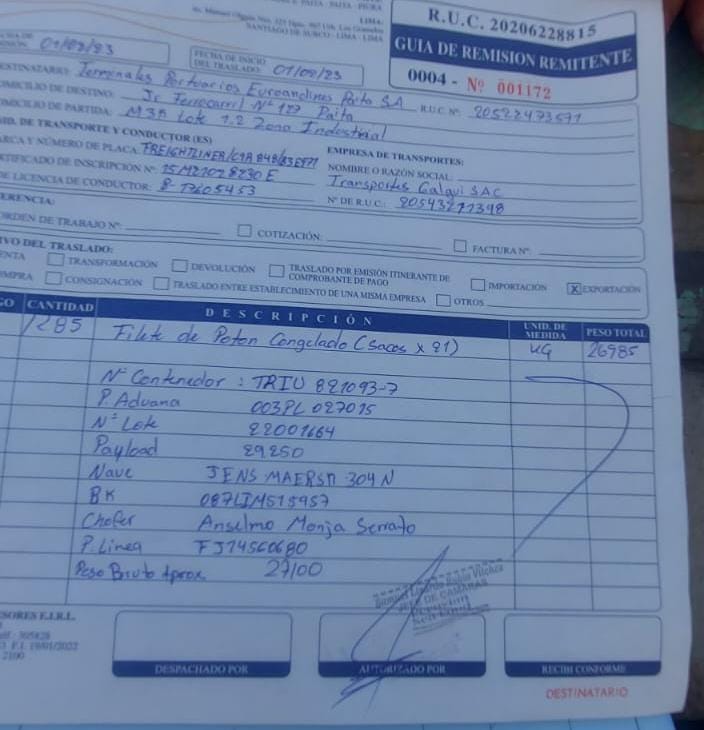 PAITA - PAITA - PIURA
LIMA:
SANTIAGO DE SURCO - LIMA - LIMA
R.U.C. 20206228815
GUIA DE REMISION REMITENTE
0004 - Nº 001172
01/02/23
FECHA DE INICIO DEL TRASLADO: 01/02/23
DESTINATARIO: Terminales Portuarios Euroandinos Paita SA R.U.C. Nº: 20522473571
DOMICILIO DE DESTINO: Jr Ferrocarril Nº 127 Paita
DOMICILIO DE PARTIDA: M3A Lote 1.2 Zona Industrial
UNID. DE TRANSPORTE Y CONDUCTOR (ES)
MARCA Y NÚMERO DE PLACA: FREIGHTLINER/
EMPRESA DE TRANSPORTES:
CERTIFICADO DE INSCRIPCIÓN Nº 15M21028230E
NOMBRE O RAZÓN SOCIAL: Transportes Galqui SAC
DE LICENCIA DE CONDUCTOR:
Nº DE R.U.C.:
ORDEN DE TRABAJO Nº: COTIZACIÓN: FACTURA Nº:
DEL TRASLADO:
TRANSFORMACIÓN DEVOLUCIÓN TRASLADO POR EMISIÓN ITINERANTE DE COMPROBANTE DE PAGO IMPORTACIÓN X EXPORTACIÓN
CONSIGNACIÓN TRASLADO ENTRE ESTABLECIMIENTO DE UNA MISMA EMPRESA OTROS
CANTIDAD DESCRIPCIÓN UNID. DE MEDIDA PESO TOTAL
1285 Filete de Poton Congelado (Sacos x 21) KG 26985
Nº Contenedor : TRIU 821093-7
P. Aduana 003PL 027015
Nº Lote 22001664
Payload 29250
Nave JENS MAERSK 304 N
BK 087LIM515957
Chofer Anselmo Monja Serrato
P. Linea FJ14560680
Peso Bruto Aprox. 27100
JEFE DE CAMARAS
E.I.R.L.
19/01/2022
DESPACHADO POR
AUTORIZADO POR
RECIBI CONFORME
DESTINATARIO